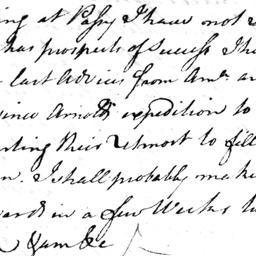 ing at Passy I have not
has prospects of Success I
last Advices from Ama. a
ince Arnolds expedition to
rting their utmost to fill
n. I shall probably make
ards in a few Weeks to
I am &c